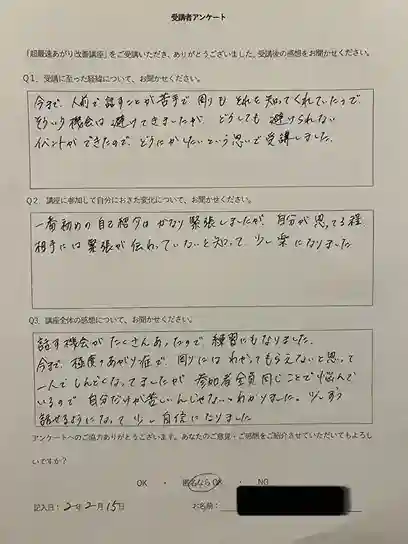 受講者アンケート
「超最速あがり改善講座」をご受講いただき、ありがとうございました。受講後の感想をお聞かせください。
Q1．受講に至った経緯について、お聞かせください。
今まで、人前で話すことが苦手で 周りも それを知ってくれていたので
そういう機会は避けてきましたが、どうしても 避けられない
イベントができたので、どうにかしたいという思いで受講しました。
Q2．講座に参加して自分におきた変化について、お聞かせください。
一番初めの自己紹介は かなり緊張しましたが、自分が思ってる程
相手には緊張が伝わっていないと知って 少し楽になりました
Q3．講座全体の感想について、お聞かせください。
話す機会がたくさんあったので 練習にもなりました。
今まで、極度のあがり症で、周りには わかってもらえないと思って
一人でしんどくなってましたが 参加者全員同じことで悩んで
いるので 自分だけが苦しいんじゃないとわかりました。少しずつ
話せるようになって 少し自信になりました
アンケートへのご協力ありがとうございます。あなたのご意見・ご感想をご紹介させていただいてもよろし
いですか？
OK ・ 匿名ならOK ・ NG
記入日：2年2月15日 お名前：